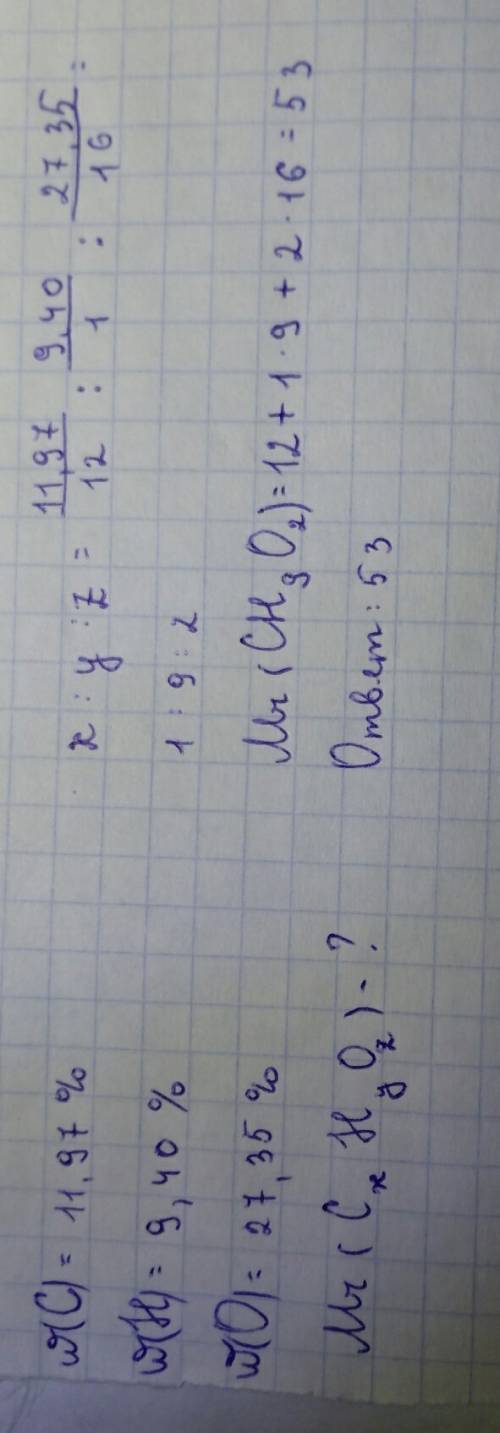 ω(C) = 11,97 %
ω(H) = 9,40 %
ω(O) = 27,35 %
Mr (CₓHᵧO_z) - ?
x : y : z = 11,97/12 : 9,40/1 : 27,35/16 =
1 : 9 : 2
Mr (CH₉O₂) = 12 + 1 · 9 + 2 · 16 = 53
Ответ: 53